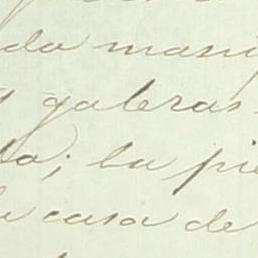 da mani
galeras
la; la pi
casa de